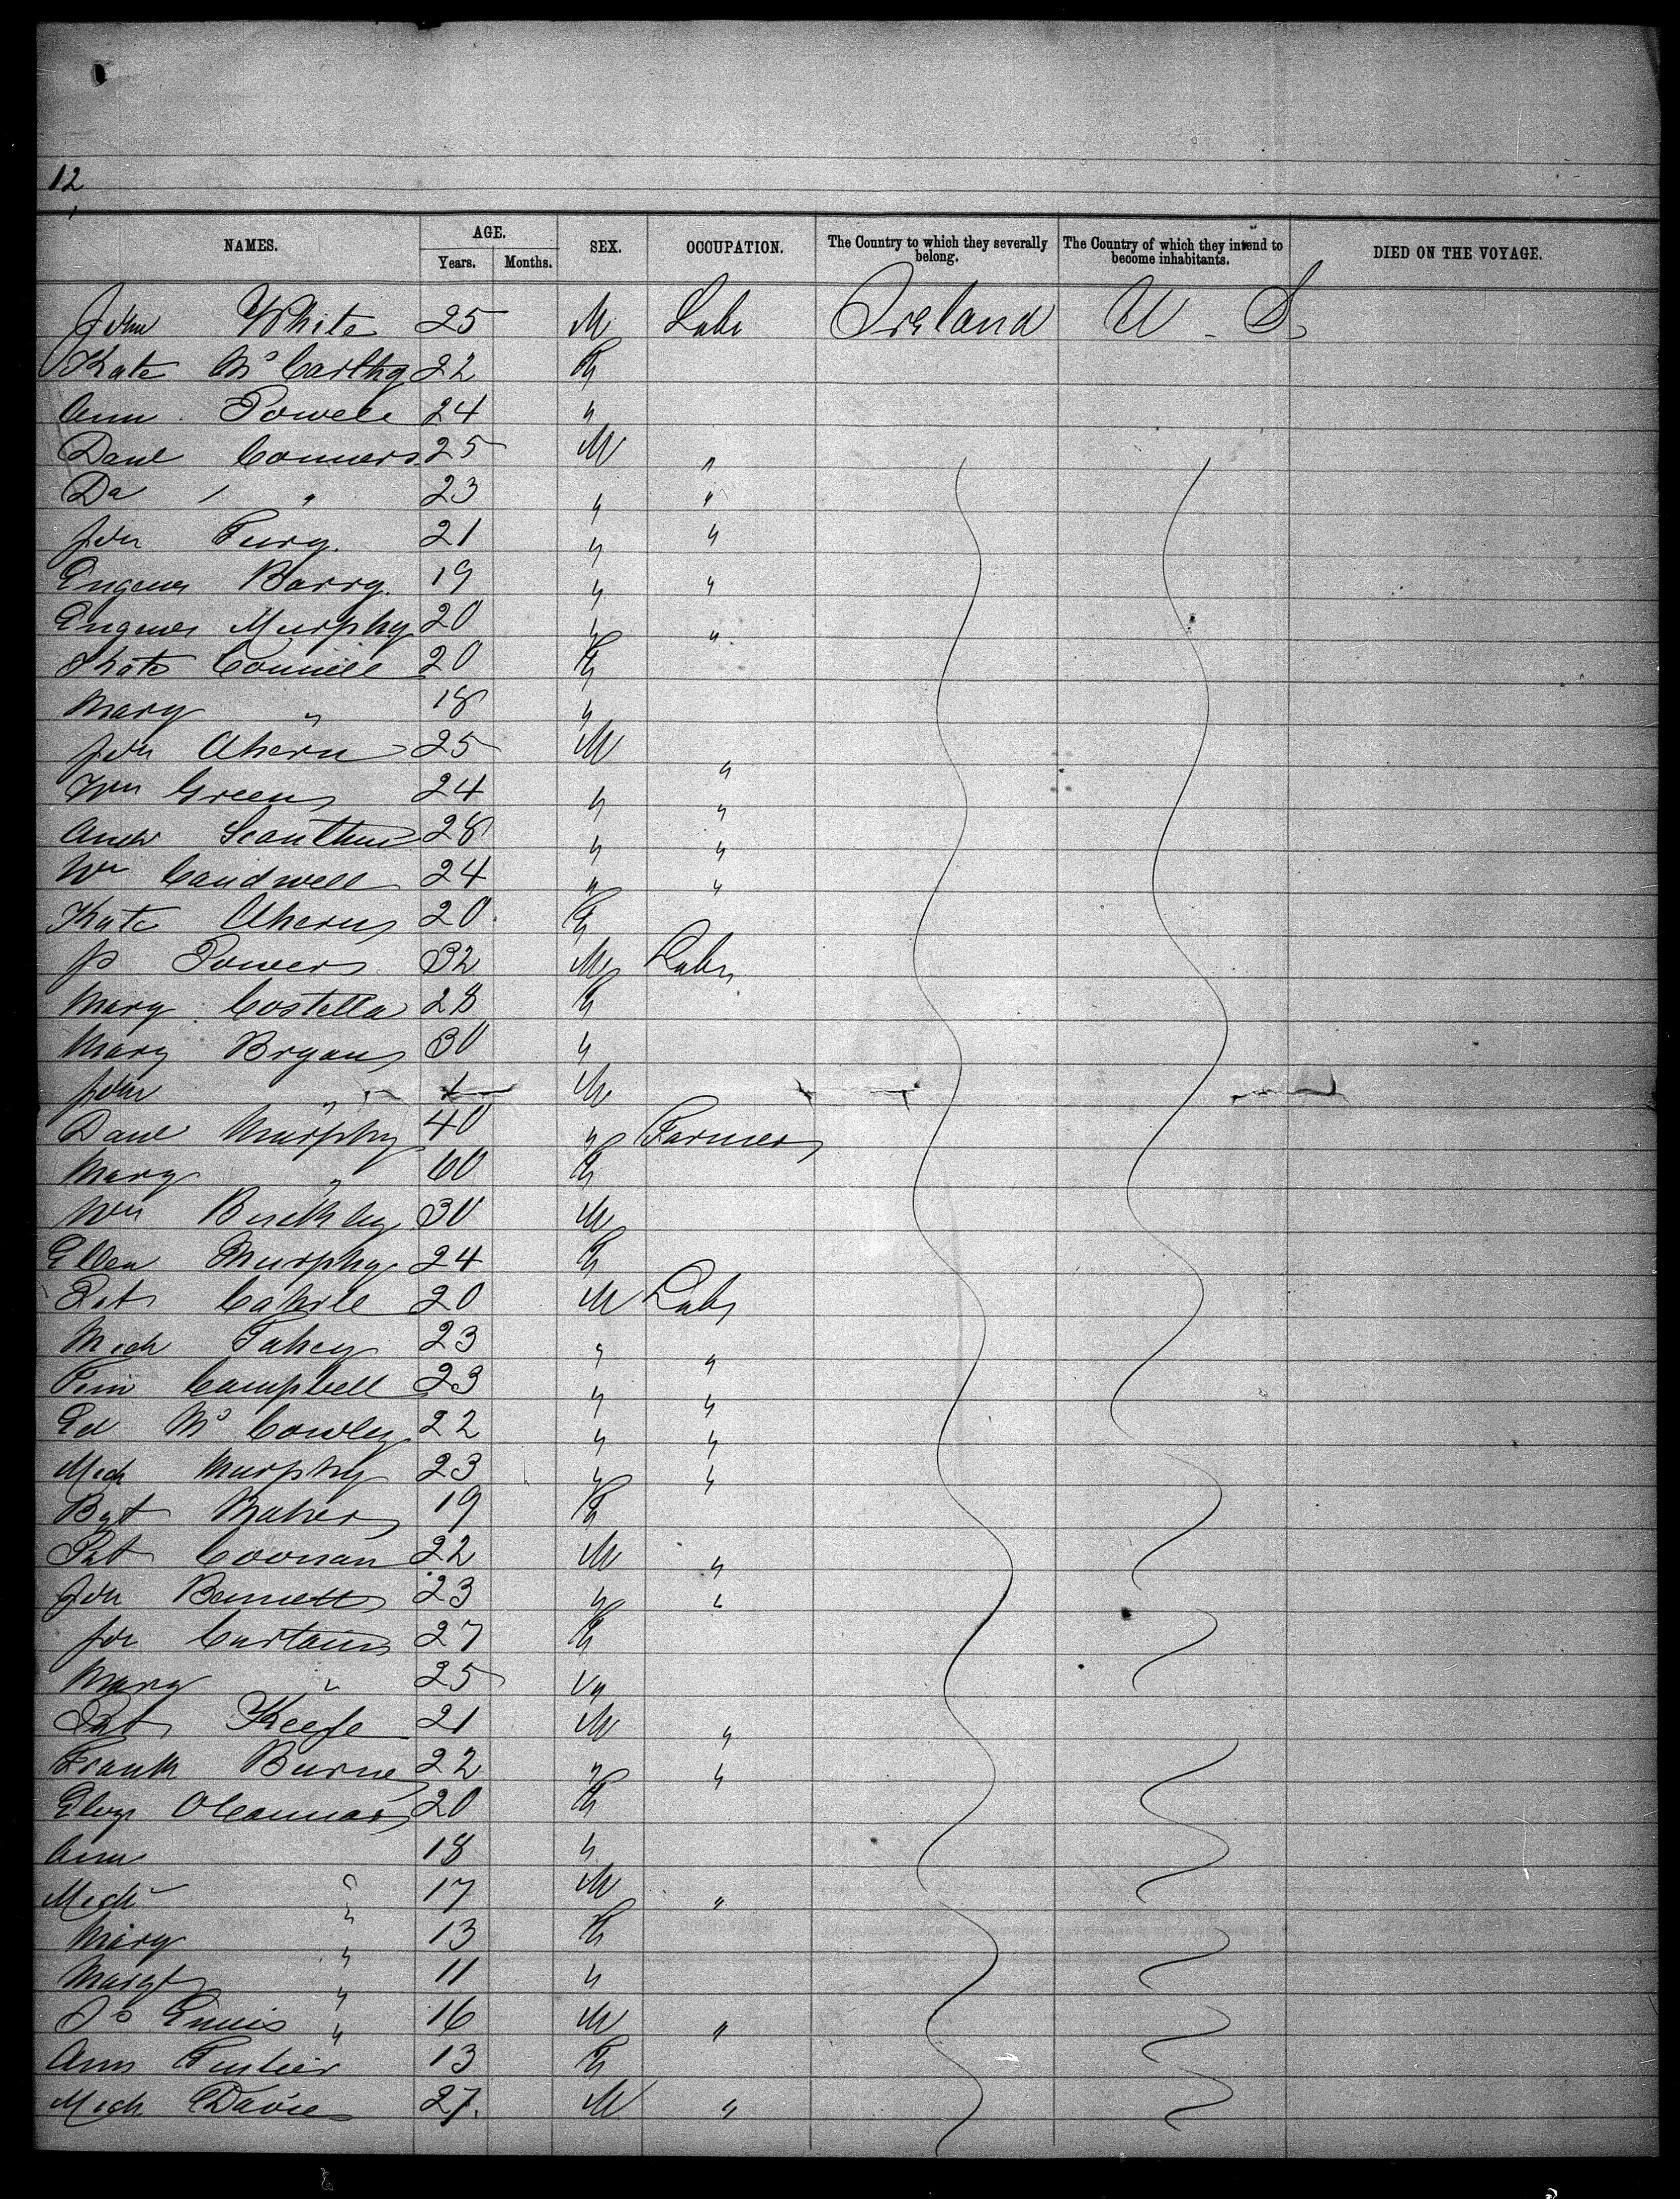 12
NAMES. AGE. SEX. OCCUPATION. The Country to which they severally belong. The Country of which they intend to become inhabitants. DIED ON THE VOYAGE.
Years. Months.
John White 25 M Labr Ireland U. S.
Kate McCarthy 22 F
Ann Powell 24 "
Danl Connors 25 M "
Da " " 23 " "
John 21 " "
Eugene Barry 19 " "
Eugene Murphy 20 " "
Kate Connell 20 F
Mary " 18 "
John Ahern 25 M "
Wm Green 24 " "
Andw 28 " "
Wm Caudwell 24 " "
Kate Ahern 20 F
P Powers 32 M Labr
Mary Costella 28 F
Mary Bryan 30 "
John " 1 M
Danl Murphy 40 " Farmer
Mary " 60 F
Wm Buckley 30 M
Ellen Murphy 24 F
Pat Cahill 20 M Labr
Mich Fahey 23 " "
Tim Campbell 23 " "
Ed McCowley 22 " "
Mich Murphy 23 " "
Bgt Maher 19 F
Pat Coonan 22 M "
John Bennett 23 " "
Jon Curtain 27 F
Mary " 25 "
Pat Keefe 21 M "
Frank Burne 22 " "
Eliza OConnor 20 F
Ann " 18 "
Mich " 17 M "
Mary " 13 F
Margt " 11 "
Jo Ennis " 16 M "
Ann 13 F
Mich Davies 27 M "